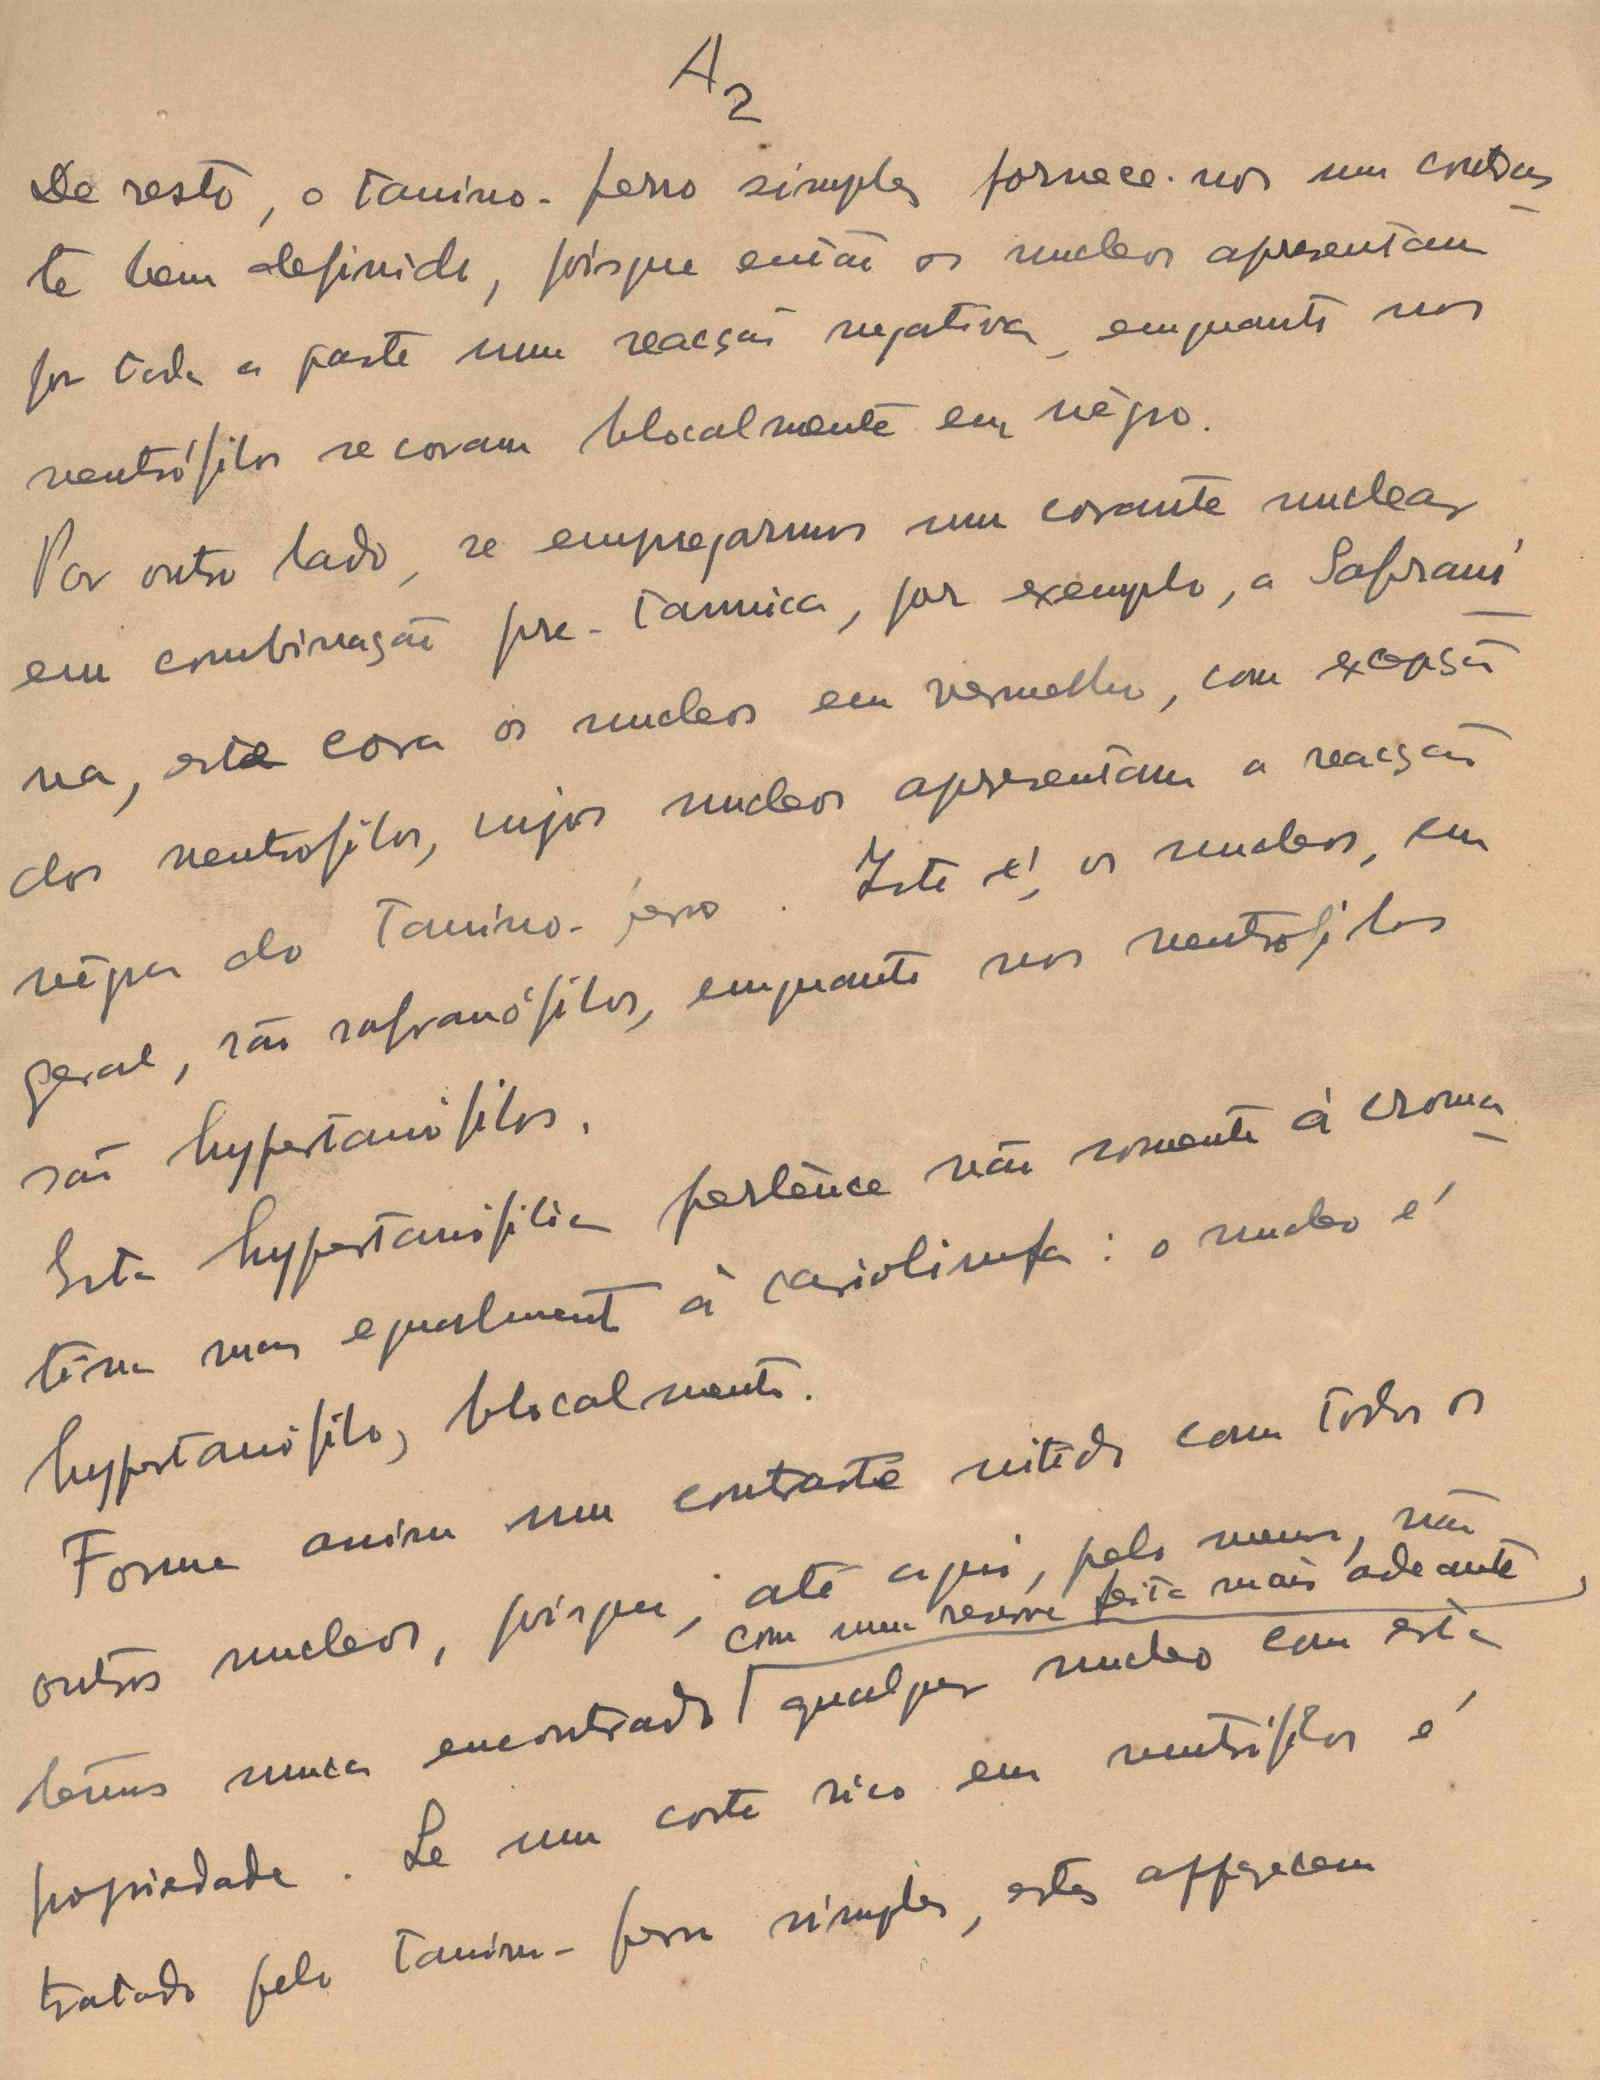 A2
De resto, o tanino-ferro simples fornece-nos um contras
te bem definido, poisque então os nucleos apresentam
por toda a parte uma reacção negativa, emquanto nos
neutrófilos se coram blocalmente em nêgro.
Por outro lado, se empregarmos um corante nuclear
em combinação pre-tannica, por exemplo, a Safrani
na, esta cora os nucleos em vermelho, com excepção
dos neutrofilos, cujos nucleos apresentam a reacção
nêgra do tanino-ferro. Isto é, os nucleos, em
geral, são safranófilos, emquanto nos neutrofilos
são hypertanófilos.
Esta hypertanofilia pertence não somente á croma
tina mas egualmente á cariolimfa: o nucleo é
hypertanófilo, blocalmente.
Forma assim um contraste nitido com todos os
outros nucleos, poisque, até aqui, pelo menos, não
com uma reserva feita mais adeante,
temos nunca encontrado qualquer nucleo com esta
propriedade. Se um corte rico em neutrófilos é
tratado pelo tanino-ferro simples, estes apparecem